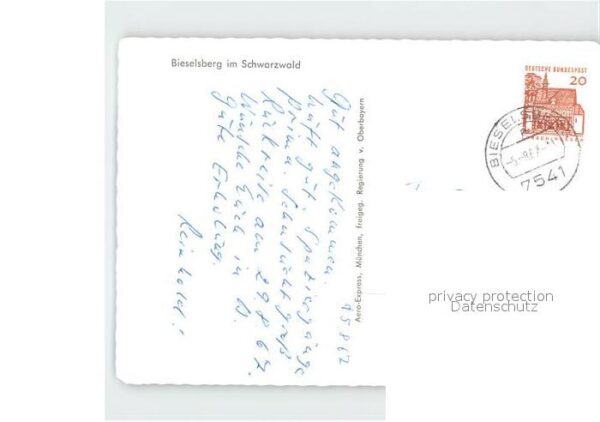 Bieselsberg im Schwarzwald
DEUTSCHE BUNDESPOST
20
BIESELSBERG
7541
Aero-Express, München, freigeg. Regierung v. Oberbayern
Gut angekommen.
hüft gut. Spaziergänge
prima. Sehnsucht groß
Rückreise am 29 8 67.
Wünsche Euch in D.
gute Erholung.
Reinhold!
privacy protection
Datenschutz